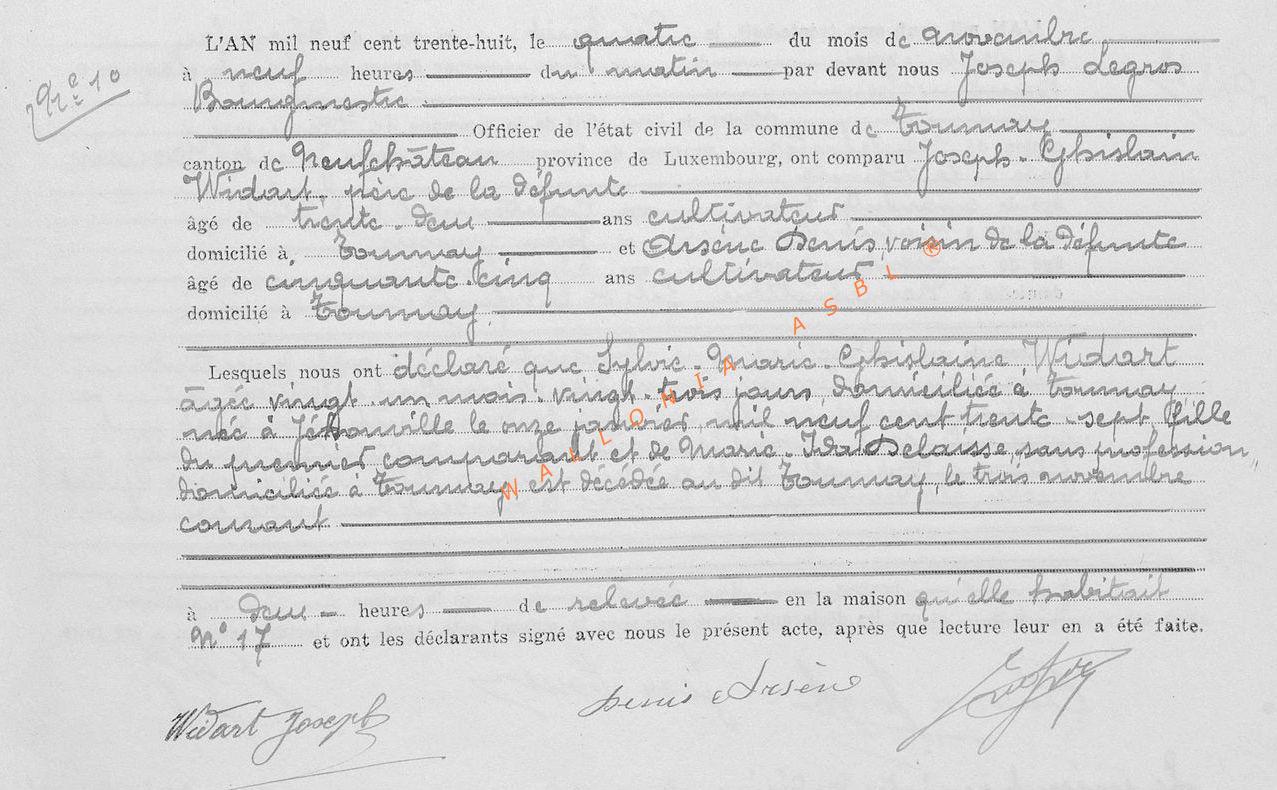 L'AN mil neuf cent trente-huit, le quatre du mois de novembre
N° 10
à neuf heures du matin par devant nous Joseph Legros
Bourgmestre
Officier de l'état civil de la commune de Tournay
canton de Neufchâteau province de Luxembourg, ont comparu Joseph-Ghislain
Widart, père de la défunte
âgé de trente-deux ans cultivateur
domicilié à Tournay et Arsène Denis, voisin de la défunte
âgé de cinquante-cinq ans cultivateur
domicilié à Tournay
Lesquels nous ont déclaré que Sylvie-Marie-Ghislaine Widart
âgée vingt-un mois-vingt-trois jours, domiciliée à Tournay
née à Jéhonville le onze janvier mil neuf cent trente-sept, fille
du premier comparant et de Marie-Ida Delaisse, sans profession,
domiciliée à Tournay est décédée au dit Tournay, le trois novembre
courant
à deux heures de relevée en la maison qu'elle habitait
N° 17 et ont les déclarants signé avec nous le présent acte, après que lecture leur en a été faite.
Widart Joseph Denis Arsène
WALLONIA ASBL ®